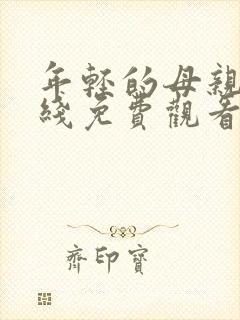 年轻的母親
綫免費觀看
齊印寶